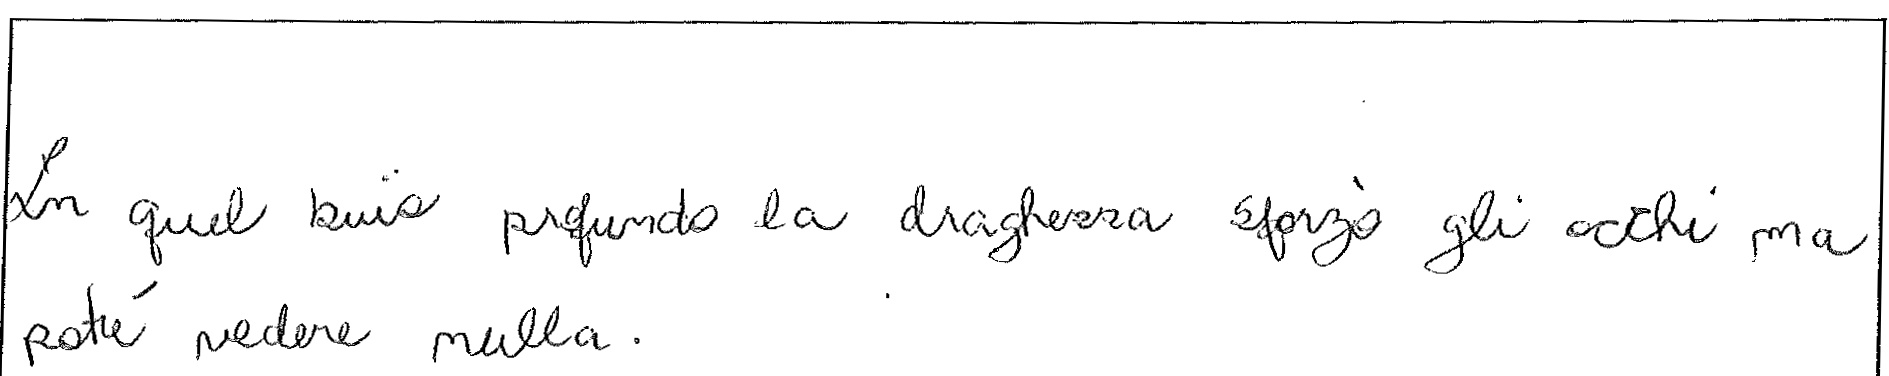 In quel buio profundo la draghessa sforzò gli occhi ma
poté vedere nulla.